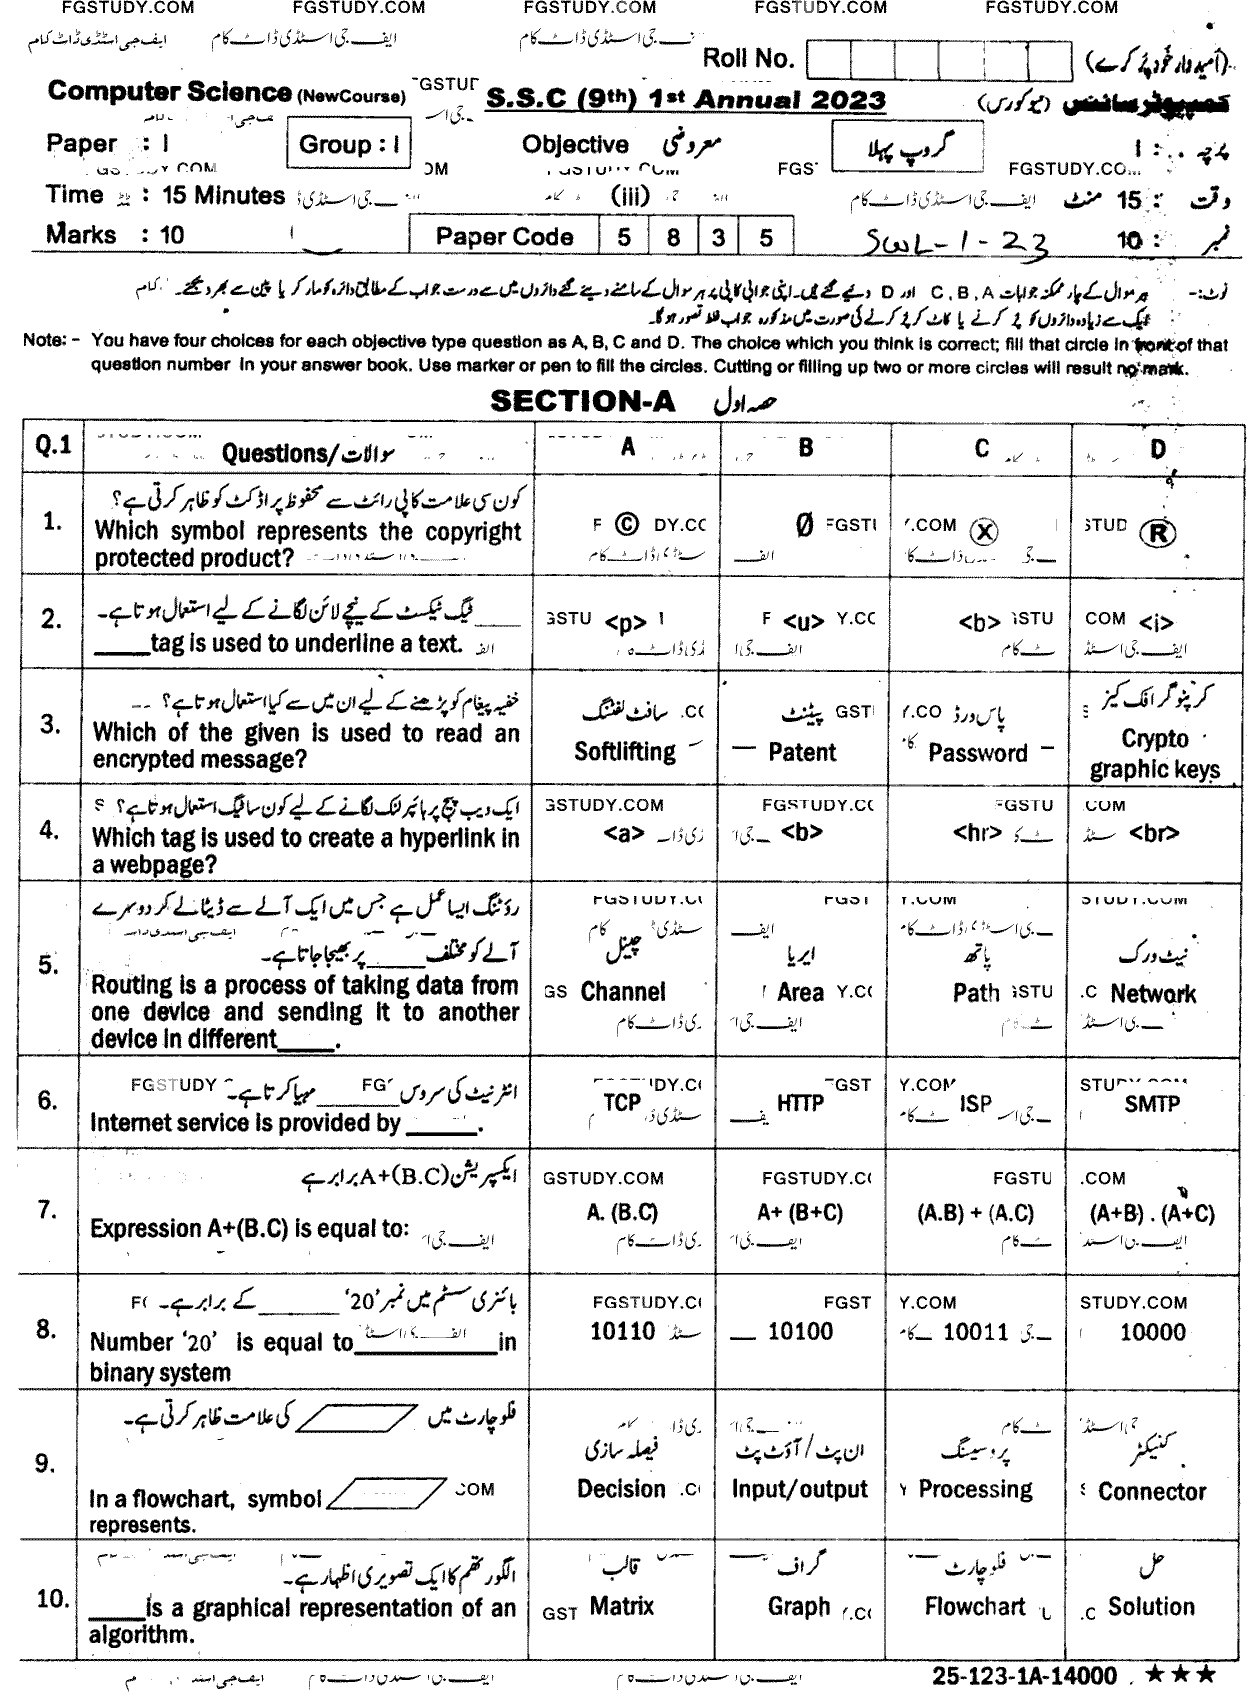 FGSTUDY.COM FGSTUDY.COM FGSTUDY.COM FGSTUDY.COM FGSTUDY.COM
ایف جی اسٹڈی ڈاٹ کام
Roll No. (امیدوار خود پُر کرے)
Computer Science (NewCourse) S.S.C (9th) 1st Annual 2023 (نیو کورس) کمپیوٹر سائنس
Paper : I Group : I Objective معروضی گروپ پہلا پرچہ : I
FGSTUDY.CO
Time : 15 Minutes (iii) ایف جی اسٹڈی ڈاٹ کام وقت : 15 منٹ
Marks : 10 Paper Code 5 8 3 5 SWL-1-23 نمبر : 10
نوٹ:- ہر سوال کے چار ممکنہ جوابات A, B, C اور D دیے گئے ہیں۔ اپنی جوابی کاپی پر ہر سوال کے سامنے دیئے گئے دائروں میں سے درست جواب کے مطابق دائرہ کو مارکر یا پین سے بھر دیجئے۔
ایک سے زیادہ دائروں کو پُر کرنے یا کاٹ کر پُر کرنے کی صورت میں مذکورہ جواب غلط تصور ہوگا۔
Note: - You have four choices for each objective type question as A, B, C and D. The choice which you think is correct; fill that circle in front of that
question number in your answer book. Use marker or pen to fill the circles. Cutting or filling up two or more circles will result no mark.
SECTION-A حصہ اول
Q.1 Questions/سوالات A B C D
1. کون سی علامت کاپی رائٹ سے محفوظ پراڈکٹ کو ظاہر کرتی ہے؟
Which symbol represents the copyright © Ø Ⓧ ®
protected product?
2. ____ ٹیگ ٹیکسٹ کے نیچے لائن لگانے کے لیے استعمال ہوتا ہے۔
____tag is used to underline a text. <p> <u> <b> <i>
3. خفیہ پیغام کو پڑھنے کے لیے ان میں سے کیا استعمال ہوتا ہے؟ سافٹ لفٹنگ پیٹنٹ پاس ورڈ کرپٹو گرافک کیز
Which of the given is used to read an Softlifting Patent Password Crypto
encrypted message? graphic keys
4. ایک ویب پیج پر ہائپر لنک لگانے کے لیے کون سا ٹیگ استعمال ہوتا ہے؟
Which tag is used to create a hyperlink in <a> <b> <hr> <br>
a webpage?
5. روٹنگ ایسا عمل ہے جس میں ایک آلے سے ڈیٹا لے کر دوسرے
آلے کو مختلف ____ پر بھیجا جاتا ہے۔ چینل ایریا پاتھ نیٹ ورک
Routing is a process of taking data from Channel Area Path Network
one device and sending it to another
device in different____.
6. انٹرنیٹ کی سروس ______ مہیا کرتا ہے۔
Internet service is provided by _____. TCP HTTP ISP SMTP
7. ایکسپریشن A+(B.C) برابر ہے
Expression A+(B.C) is equal to: A. (B.C) A+ (B+C) (A.B) + (A.C) (A+B) . (A+C)
8. بائنری سسٹم میں نمبر '20' ______ کے برابر ہے۔
Number '20' is equal to__________in 10110 10100 10011 10000
binary system
9. فلو چارٹ میں کی علامت ظاہر کرتی ہے۔ فیصلہ سازی ان پٹ / آؤٹ پٹ پروسیسنگ کنیکٹر
In a flowchart, symbol Decision Input/output Processing Connector
represents.
10. الگورتھم کا ایک تصویری اظہار ہے۔ قالب گراف فلو چارٹ حل
____is a graphical representation of an Matrix Graph Flowchart Solution
algorithm.
25-123-1A-14000 ★★★